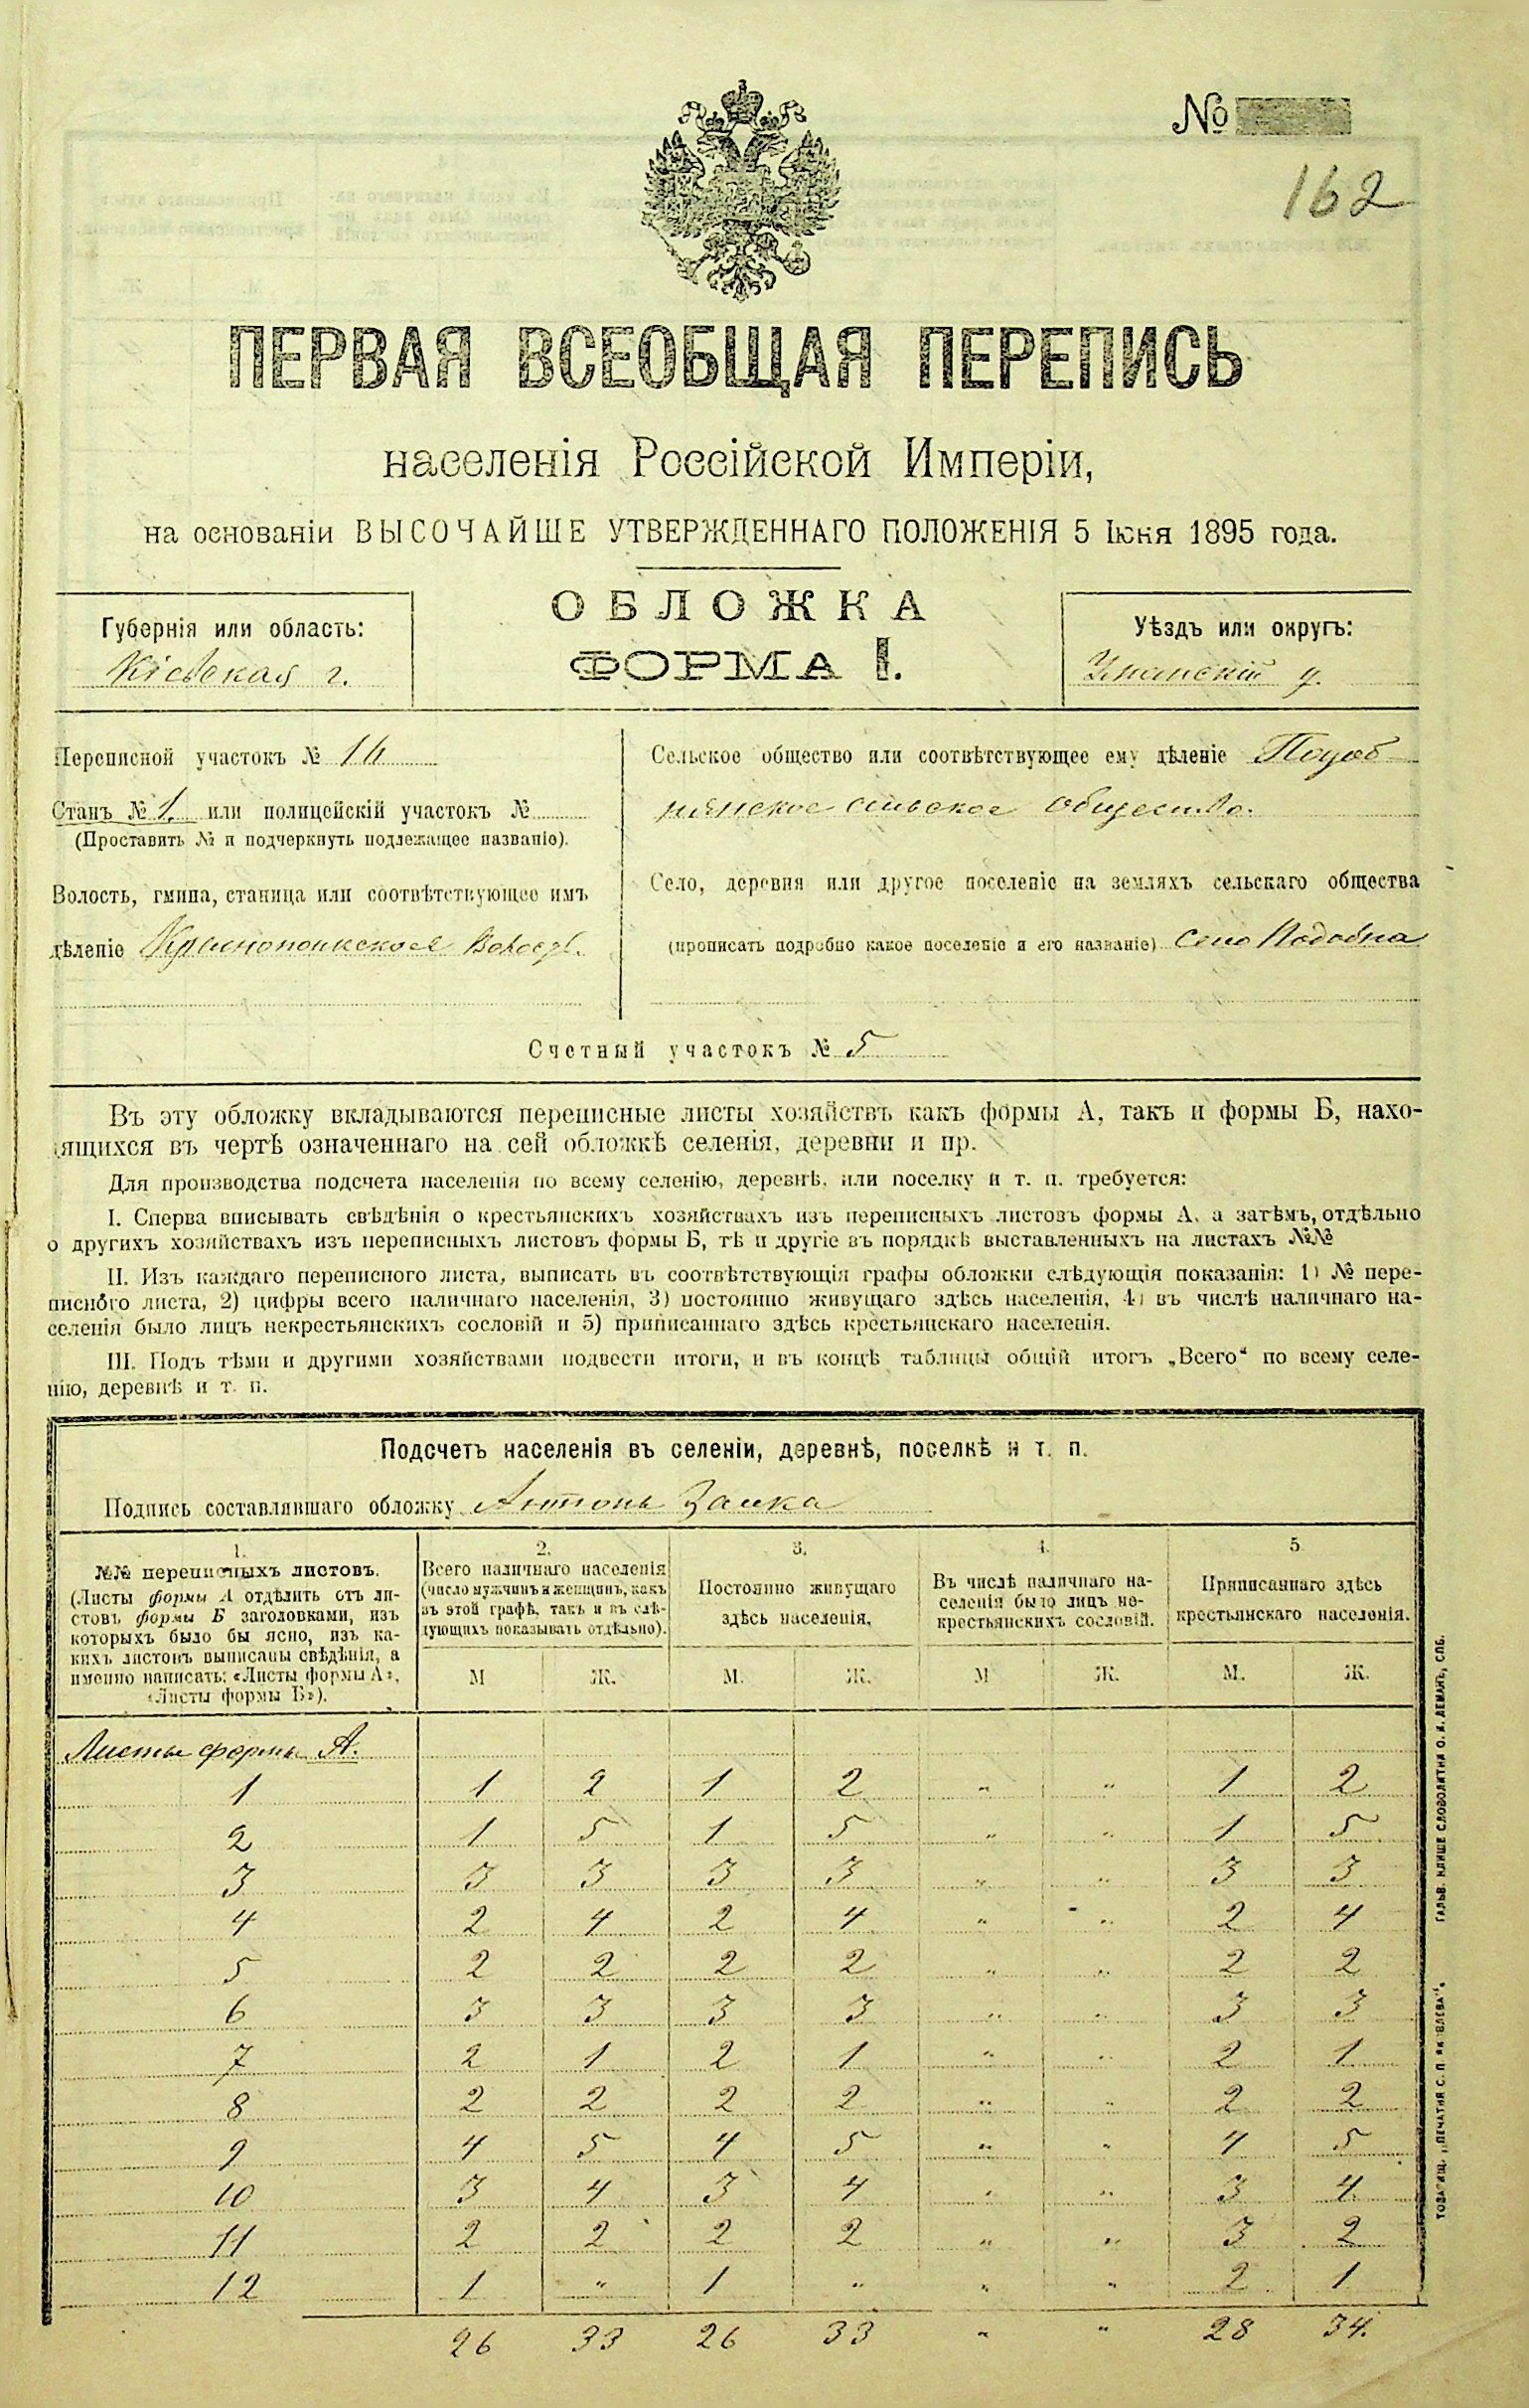 №
162
ПЕРВАЯ ВСЕОБЩАЯ ПЕРЕПИСЬ
населенія Россійской Имперіи,
на основаніи ВЫСОЧАЙШЕ УТВЕРЖДЕННАГО ПОЛОЖЕНІЯ 5 Іюня 1895 года.
ОБЛОЖКА
ФОРМА I.
Губернія или область:
Кіевская г.
Уѣздъ или округъ:
Уманскій у.
Переписной участокъ № 14
Станъ № 1. или полицейскій участокъ №
(Проставить № и подчеркнуть подлежащее названіе).
Волость, гмина, станица или соотвѣтствующее имъ
дѣленіе
Сельское общество или соотвѣтствующее ему дѣленіе
нянское сельское общество.
Село, деревня или другое поселеніе на земляхъ сельскаго общества
(прописать подробно какое поселеніе и его названіе) Село Подобна
Счетный участокъ № 5
Въ эту обложку вкладываются переписные листы хозяйствъ какъ формы А, такъ и формы Б, нахо-
дящихся въ чертѣ означеннаго на сей обложкѣ селенія, деревни и пр.
Для производства подсчета населенія по всему селенію, деревнѣ, или поселку и т. п. требуется:
I. Сперва вписывать свѣдѣнія о крестьянскихъ хозяйствахъ изъ переписныхъ листовъ формы А, а затѣмъ, отдѣльно
о другихъ хозяйствахъ изъ переписныхъ листовъ формы Б, тѣ и другіе въ порядкѣ выставленныхъ на листахъ №№
II. Изъ каждаго переписного листа, выписать въ соотвѣтствующія графы обложки слѣдующія показанія: 1) № пере-
писного листа, 2) цифры всего наличнаго населенія, 3) постоянно живущаго здѣсь населенія, 4) въ числѣ наличнаго на-
селенія было лицъ некрестьянскихъ сословій и 5) приписаннаго здѣсь крестьянскаго населенія.
III. Подъ тѣми и другими хозяйствами подвести итоги, и въ концѣ таблицы общій итогъ „Всего“ по всему селе-
нію, деревнѣ и т. п.
Подсчетъ населенія въ селеніи, деревнѣ, поселкѣ и т. п.
Подпись составлявшаго обложку Антонъ Заика
1.
№№ переписныхъ листовъ.
(Листы формы А отдѣлить отъ ли-
стовъ формы Б заголовками, изъ
которыхъ было бы ясно, изъ ка-
кихъ листовъ выписаны свѣдѣнія, а
именно написать: «Листы формы А»,
«Листы формы Б»).
2.
Всего наличнаго населенія
(число мужчинъ и женщинъ, какъ
въ этой графѣ, такъ и въ слѣ-
дующихъ показывать отдѣльно).
3.
Постоянно живущаго
здѣсь населенія.
4.
Въ числѣ наличнаго на-
селенія было лицъ не-
крестьянскихъ сословій.
5
Приписаннаго здѣсь
крестьянскаго населенія.
М Ж. М. Ж. М Ж. М. Ж.
Листы формы А.
1 1 2 1 2 " " 1 2
2 1 5 1 5 " " 1 5
3 3 3 3 3 " " 3 3
4 2 4 2 4 " " 2 4
5 2 2 2 2 " " 2 2
6 3 3 3 3 " " 3 3
7 2 1 2 1 " " 2 1
8 2 2 2 2 " " 2 2
9 4 5 4 5 " " 4 5
10 3 4 3 4 " " 3 4
11 2 2 2 2 " " 3 2
12 1 " 1 " " " 2 1
26 33 26 33 " " 28 34.
ГАЛЬВ. КЛИШЕ СЛОВОЛИТНИ О. И. ЛЕМАНЪ, СПБ.
ТОВАРИЩ. „ПЕЧАТНЯ С. П. ЯКОВЛЕВА“.